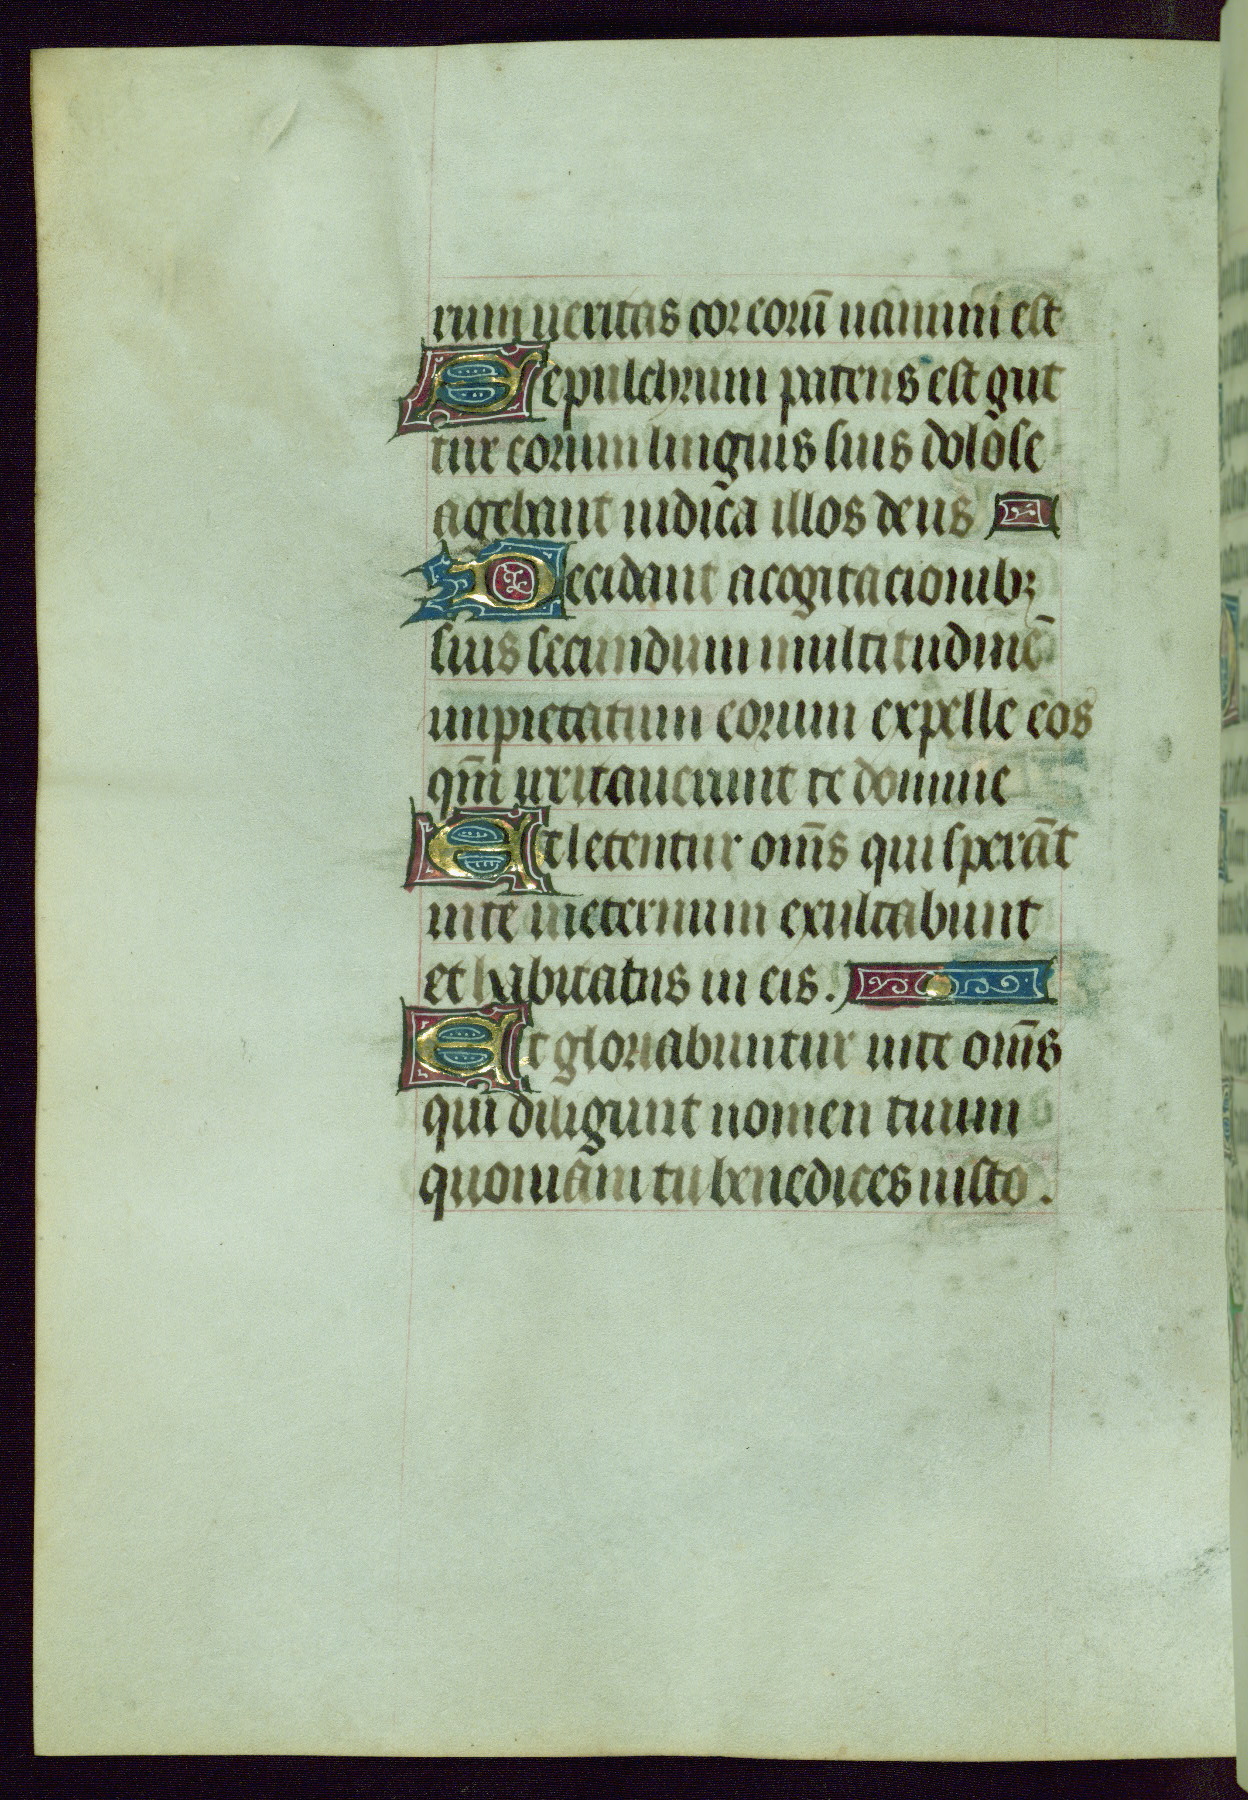 rum ueritas cor eorū uanum est
Sepulchrum patens est gut
tur eorum linguis suis dolose
agebant iudica illos deus
Decidant acogitacionibꝫ
suis secundum multitudinē
impietatum eorum expelle eos
qm̄ irritauerunt te domine
Et letentur om̄s qui sperāt
inte ineternum exultabunt
et habitabis in eis.
Et gloriabuntur inte om̄s
qui diligunt nomen tuum
quoniam tu benedices iusto.